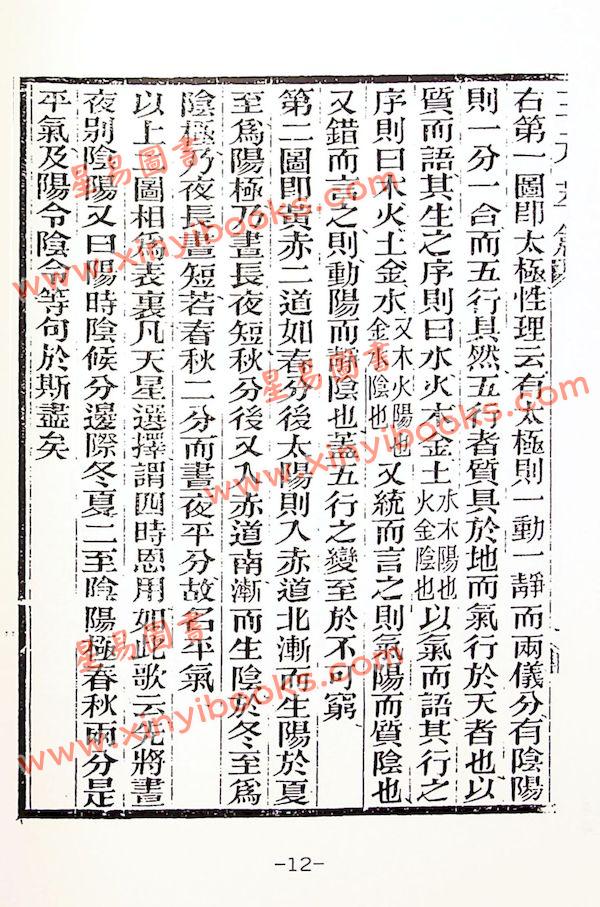 右第一圖即太極性理云有太極則一動一靜而兩儀分有陰陽
則一分一合而五行具然五行者質具於地而氣行於天者也以
質而語其生之序則曰水火木金土水木陽也火金陰也以氣而語其行之
序則曰木火土金水又木火陽也金水陰也又統而言之則氣陽而質陰也
又錯而言之則動陽而靜陰也蓋五行之變至於不可窮
第二圖即黃赤二道如春分後太陽則入赤道北漸而生陽於夏
至爲陽極乃晝長夜短秋分後又入赤道南漸而生陰於冬至爲
陰極乃夜長晝短若春秋二分而晝夜平分故名平氣
以上二圖相爲表裏凡天星選擇謂四時恩用如此歌云先將晝
夜别陰陽又曰陽時陰候分邊際冬夏二至陰陽極春秋兩分是
平氣及陽令陰令等句於斯盡矣
-12-
星易圖書
www.xinyibooks.com
星易圖書
www.xinyibooks.com
星易圖書
www.xinyibooks.com